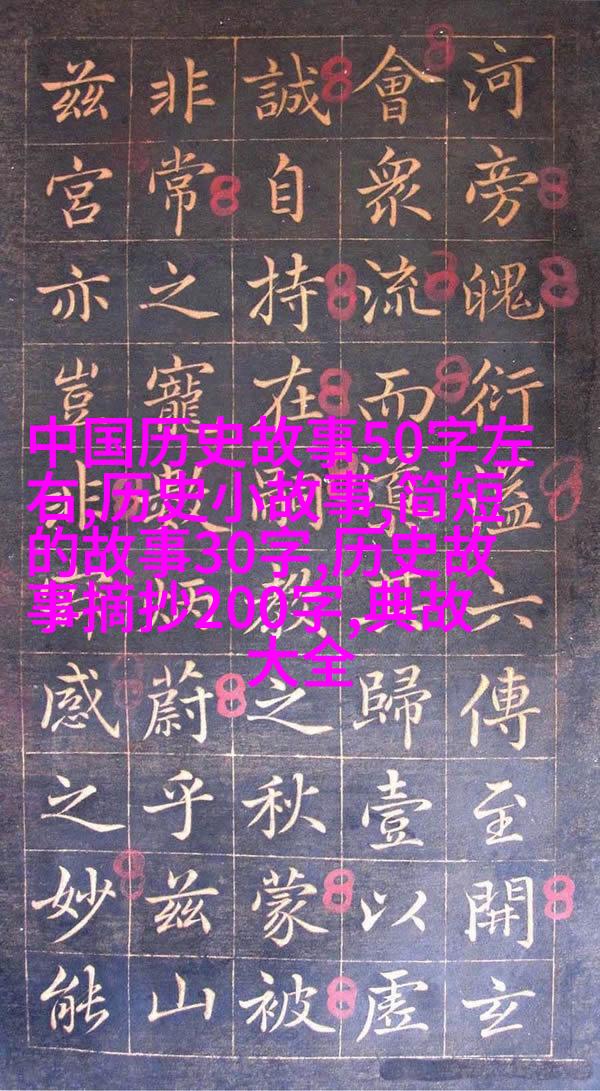 河旁魄衍溢六傳至開玄
會衆流而其歸壹以虛
誠自持在教之秋蒙被
非常之寵蔚乎兹山
兹宮亦豈非感之妙能
中国历史故事50字左
右,历史小故事,简短
的故事30字,历史故
事摘抄200字,典故
大全